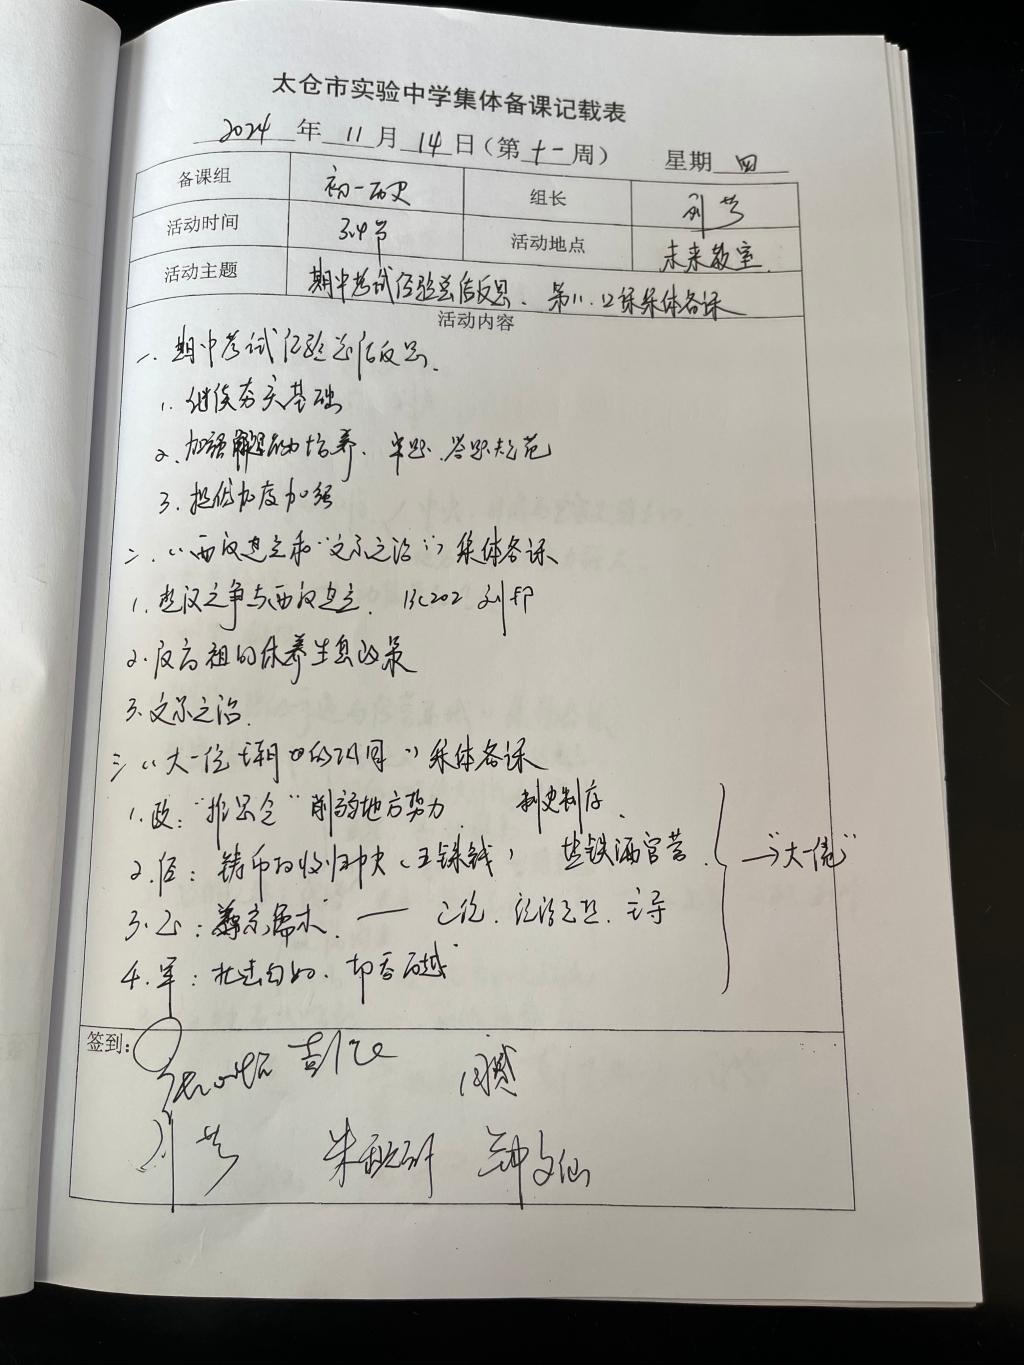 太仓市实验中学集体备课记载表
2024 年 11 月 14 日（第 十一 周） 星期 四
备课组 初一历史 组长 刘芳
活动时间 3.4节 活动地点 未来教室.
活动主题 期中考试经验总结反思、第11.12课集体备课
活动内容
一. 期中考试经验总结反思.
1. 继续夯实基础
2. 加强解题能力培养. 审题. 答题规范
3. 提优力度加强
二.《西汉建立和“文景之治”》集体备课
1. 楚汉之争与西汉建立. BC202 刘邦
2. 汉高祖的休养生息政策
3. 文景之治.
三《大一统王朝的巩固》集体备课
1. 政:“推恩令”削弱地方势力 刺史制度.
2. 经: 铸币权收归中央(五铢钱) 盐铁酒官营. →“大一统”
3. 文: 尊崇儒术. — 正统. 主导
4. 军: 北击匈奴.
签到:
刘芳 钟文仙